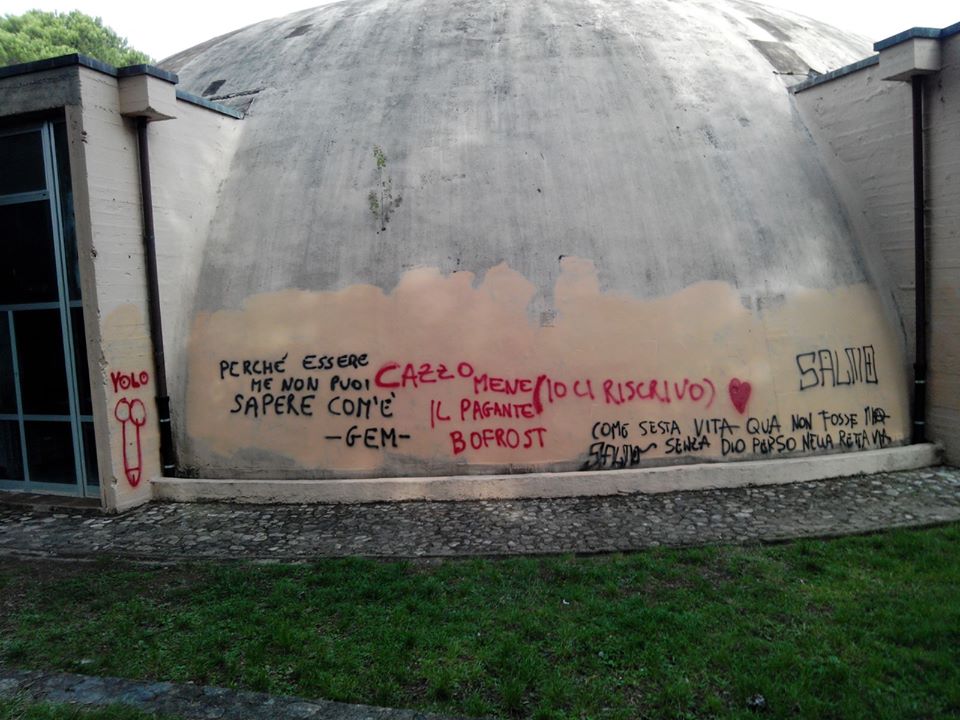 YOLO
PERCHÉ ESSERE
ME NON PUOI
SAPERE COM'È
-GEM-
CAZZO
MENE
IL PAGANTE
BOFROST
(IO CI RISCRIVO)
SALMO
COME SESTA VITA QUA NON FOSSE MIA
SALMO SENZA DIO PERSO NELLA RETTA VIA